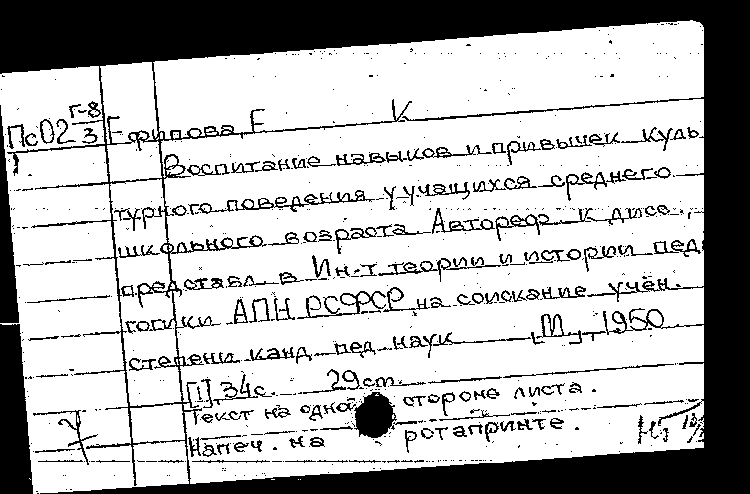 Пс02 Г-8/3 Ефилова, Е К
1.
Воспитание навыков и привычек куль
турного поведения у учащихся среднего
школьного возраста Автореф. к дисс.,
представл. в Ин-т теории и истории педа
гогики АПН РСФСР на соискание учён.
степени канд. пед. наук [М.], 1950
[1], 34с. 29 ст.
Текст на одной стороне листа.
Напеч. на ротапринте.